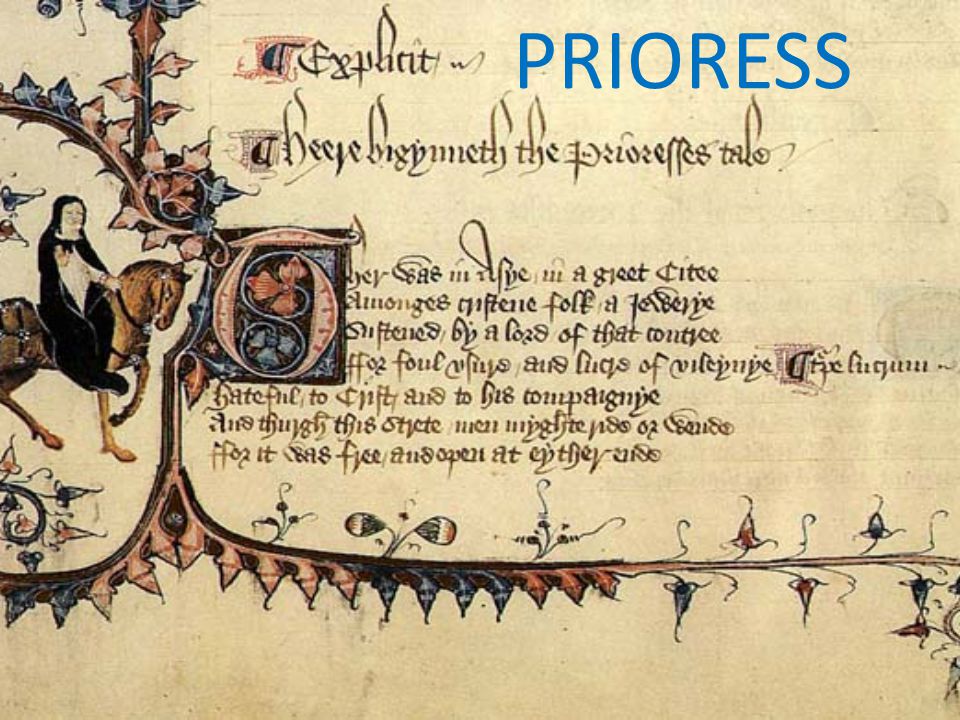 PRIORESS
Explicit
Heere bigynneth the Prioresses tale
Ther was in Asye, in a greet Citee
Amonges cristene folk, a Jewerye
Sustened, by a lord of that contree
ffor foul vsure, and lucre of vileynye turpe lucrum
hateful, to Crist, and to his compaignye
And thurgh this Strete, men myghte ride or wende
ffor it was free, and open at eyther ende